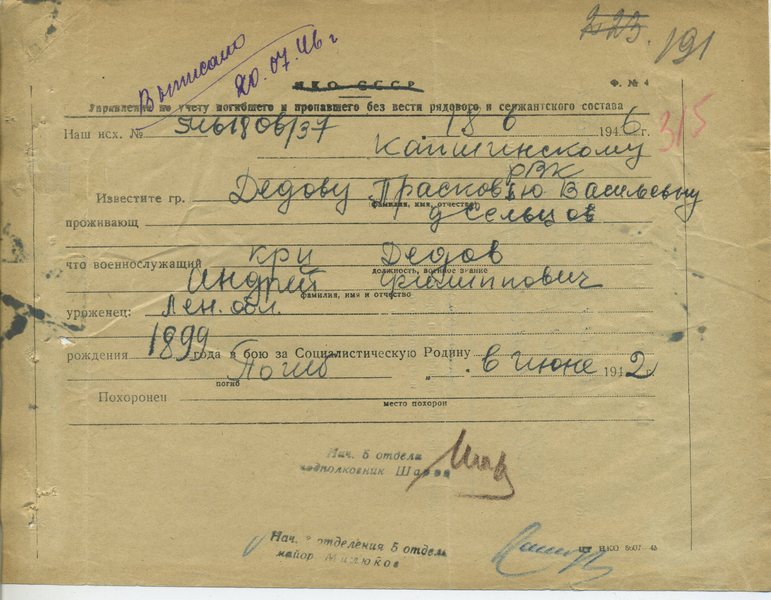 Выписано
20.07.46 г
223. 191
НКО СССР
Ф. № 4
Управление по учету погибшего и пропавшего без вести рядового и сержантского состава
Наш исх. № 18 6 1946 г.
315
Капшинскому
РВК
Известите гр. Дедову Прасковью Васильевну
фамилия, имя, отчество
проживающ д Сельцов
что военнослужащий кр-ц Дедов
должность, военное звание
Андрей Филиппович
фамилия, имя и отчество
уроженец: Лен. обл.
рождения 1899 года в бою за Социалистическую Родину
Погиб „ . в июне 1942 г.
погиб
Похоронен
место похорон
Нач. 5 отдела
подполковник
Нач. отделения 5 отдела
майор Милюков